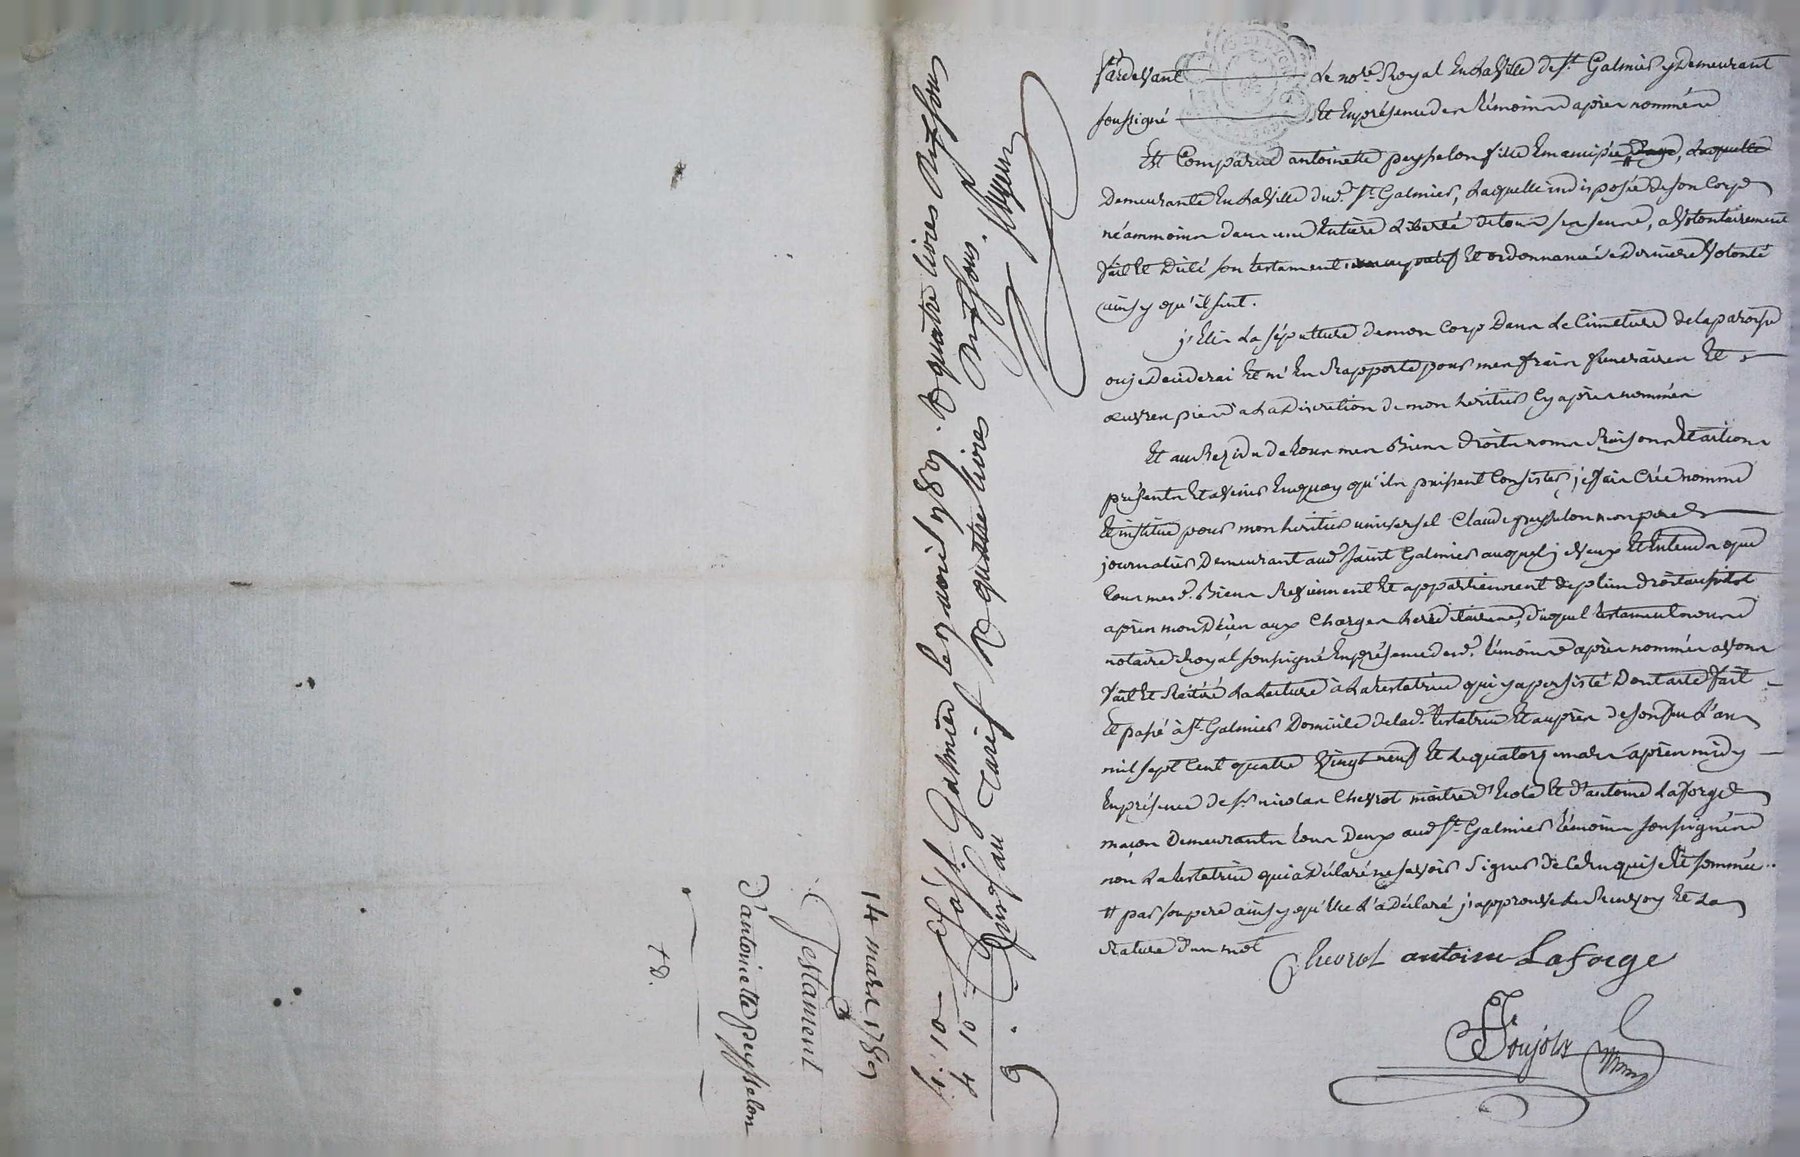 14 mars 1789
Testament
d'antoinette peysselon
+ D.
St Galmier le 9 avril 1789. R quatre livres dix sous
quatre livres dix sous.
pardevant le no.re Royal en la ville de St. Galmier y demeurant
soussigné Et en présence des témoins après nommés
Est Comparue antoinette peysselon fille Emancipée #, Laquelle
Demeurante en la ville dud. St. Galmier, Laquelle indisposée de son Corps
néammoins dans une Entiere Liberté de tous ses sens, a volontairement
fait Et dicté son testament nuncupatif Et ordonnance de Derniere volonté
ainsy qu'il suit.
j'Elis La sépulture de mon Corps Dans Le Cimetiere de la paroisse
ou je Decéderai Et m'En Rapporte pour mes frais funeraires Et
œuvres pies a La Discretion de mon heritier Cy après nommé
Et au Rezidu de tous mes Biens droits noms Raisons Et actions
présents Et avenir En quoy qu'ils puissent Consister, je fais Crée nomme
Et institue pour mon heritier universel Claude peysselon mon pere
journalier Demeurant aud. Saint Galmier auquel je veux Et Entends que
tous mesd. Biens Reviennent Et appartiennent de plein droit aussitot
après mon Décès aux Charges hereditaires, duquel testament nous
notaire Royal soussigné En présence desd. témoins après nommés avons
fait Et Réitéré La Lecture à La testatrice qui y a persisté Dont acte fait
Et passé à St. Galmier Domicile de lad. testatrice Et auprès de son feu L'an
mil sept Cent quatre vingt neuf Et Le quatorze mars après midy
En présence de Sr. nicolas Chevrot maitre d'Ecole Et d'antoine Laforge
maçon Demeurants tous Deux aud. St. Galmier témoins soussignés
non La testatrice qui a Déclaré ne savoir signer de Ce Enquise Et sommée..
# par son pere ainsy qu'elle L'a Déclaré j'approuve Le Renvoy Et La
Rature d'un mot
Chevrot antoine Laforge